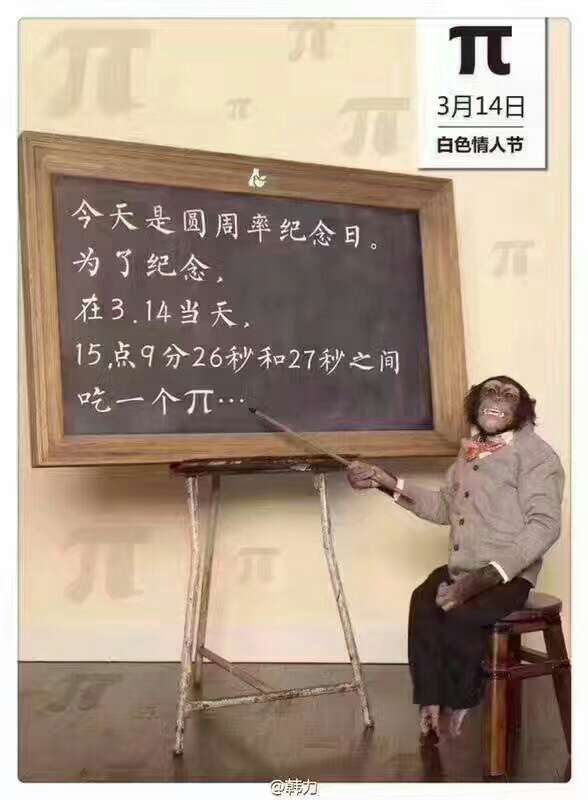 π
3月14日
白色情人节
今天是圆周率纪念日。
为了纪念,
在3.14当天,
15点9分26秒和27秒之间
吃一个π…
@韩力